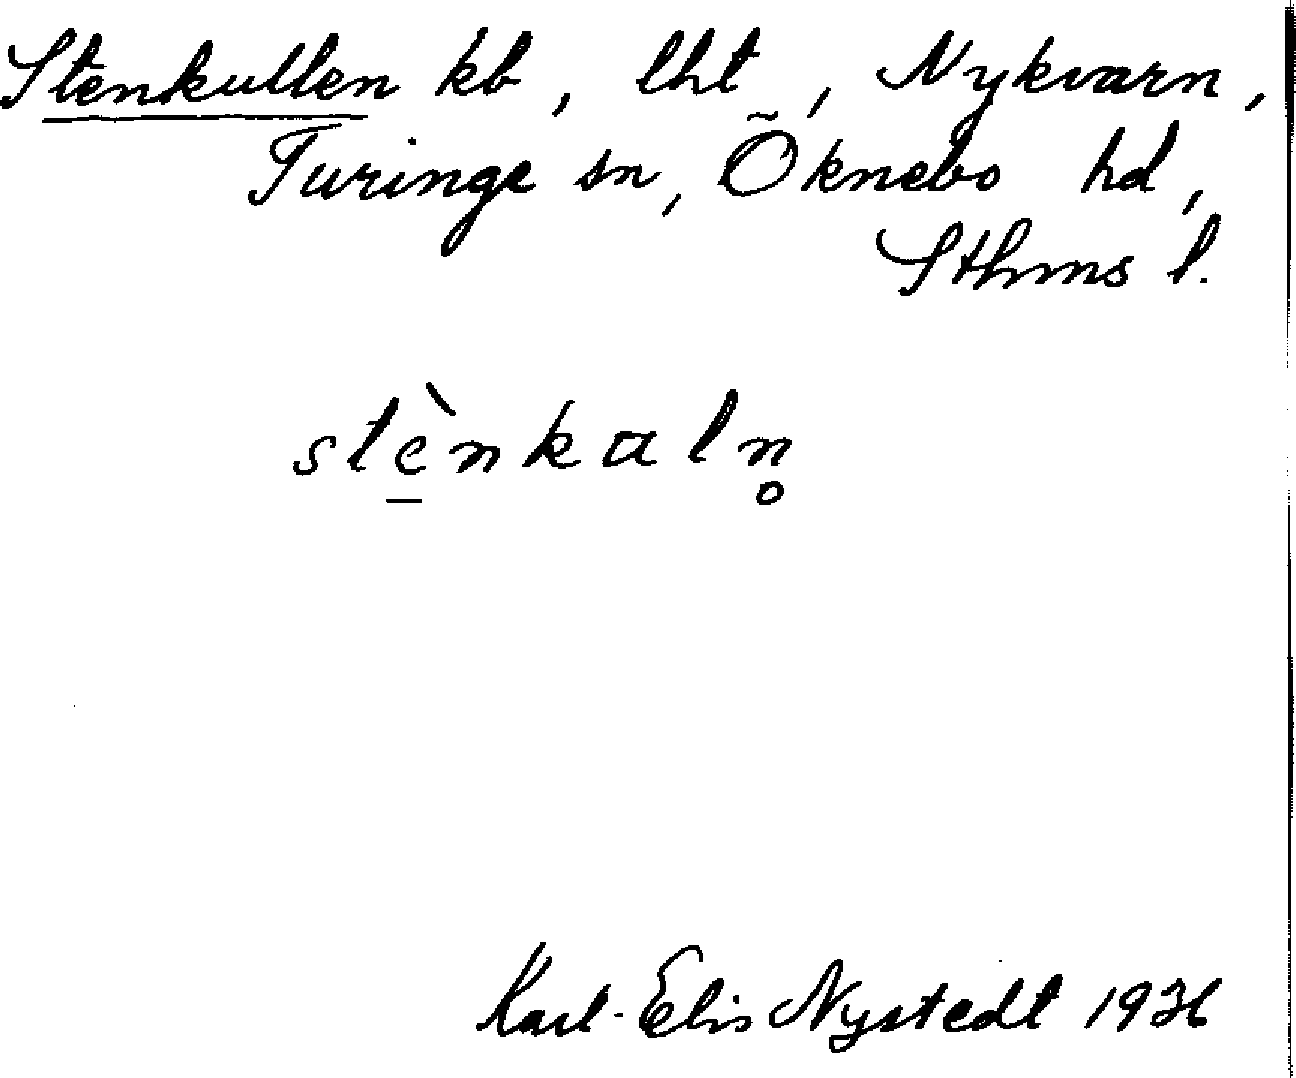 Stenkullen kb, lht, Nykvarn,
Turinge sn, Öknebo hd,
Sthms l.
stè̠nkaln̥
Karl-Elis Nystedt 1936